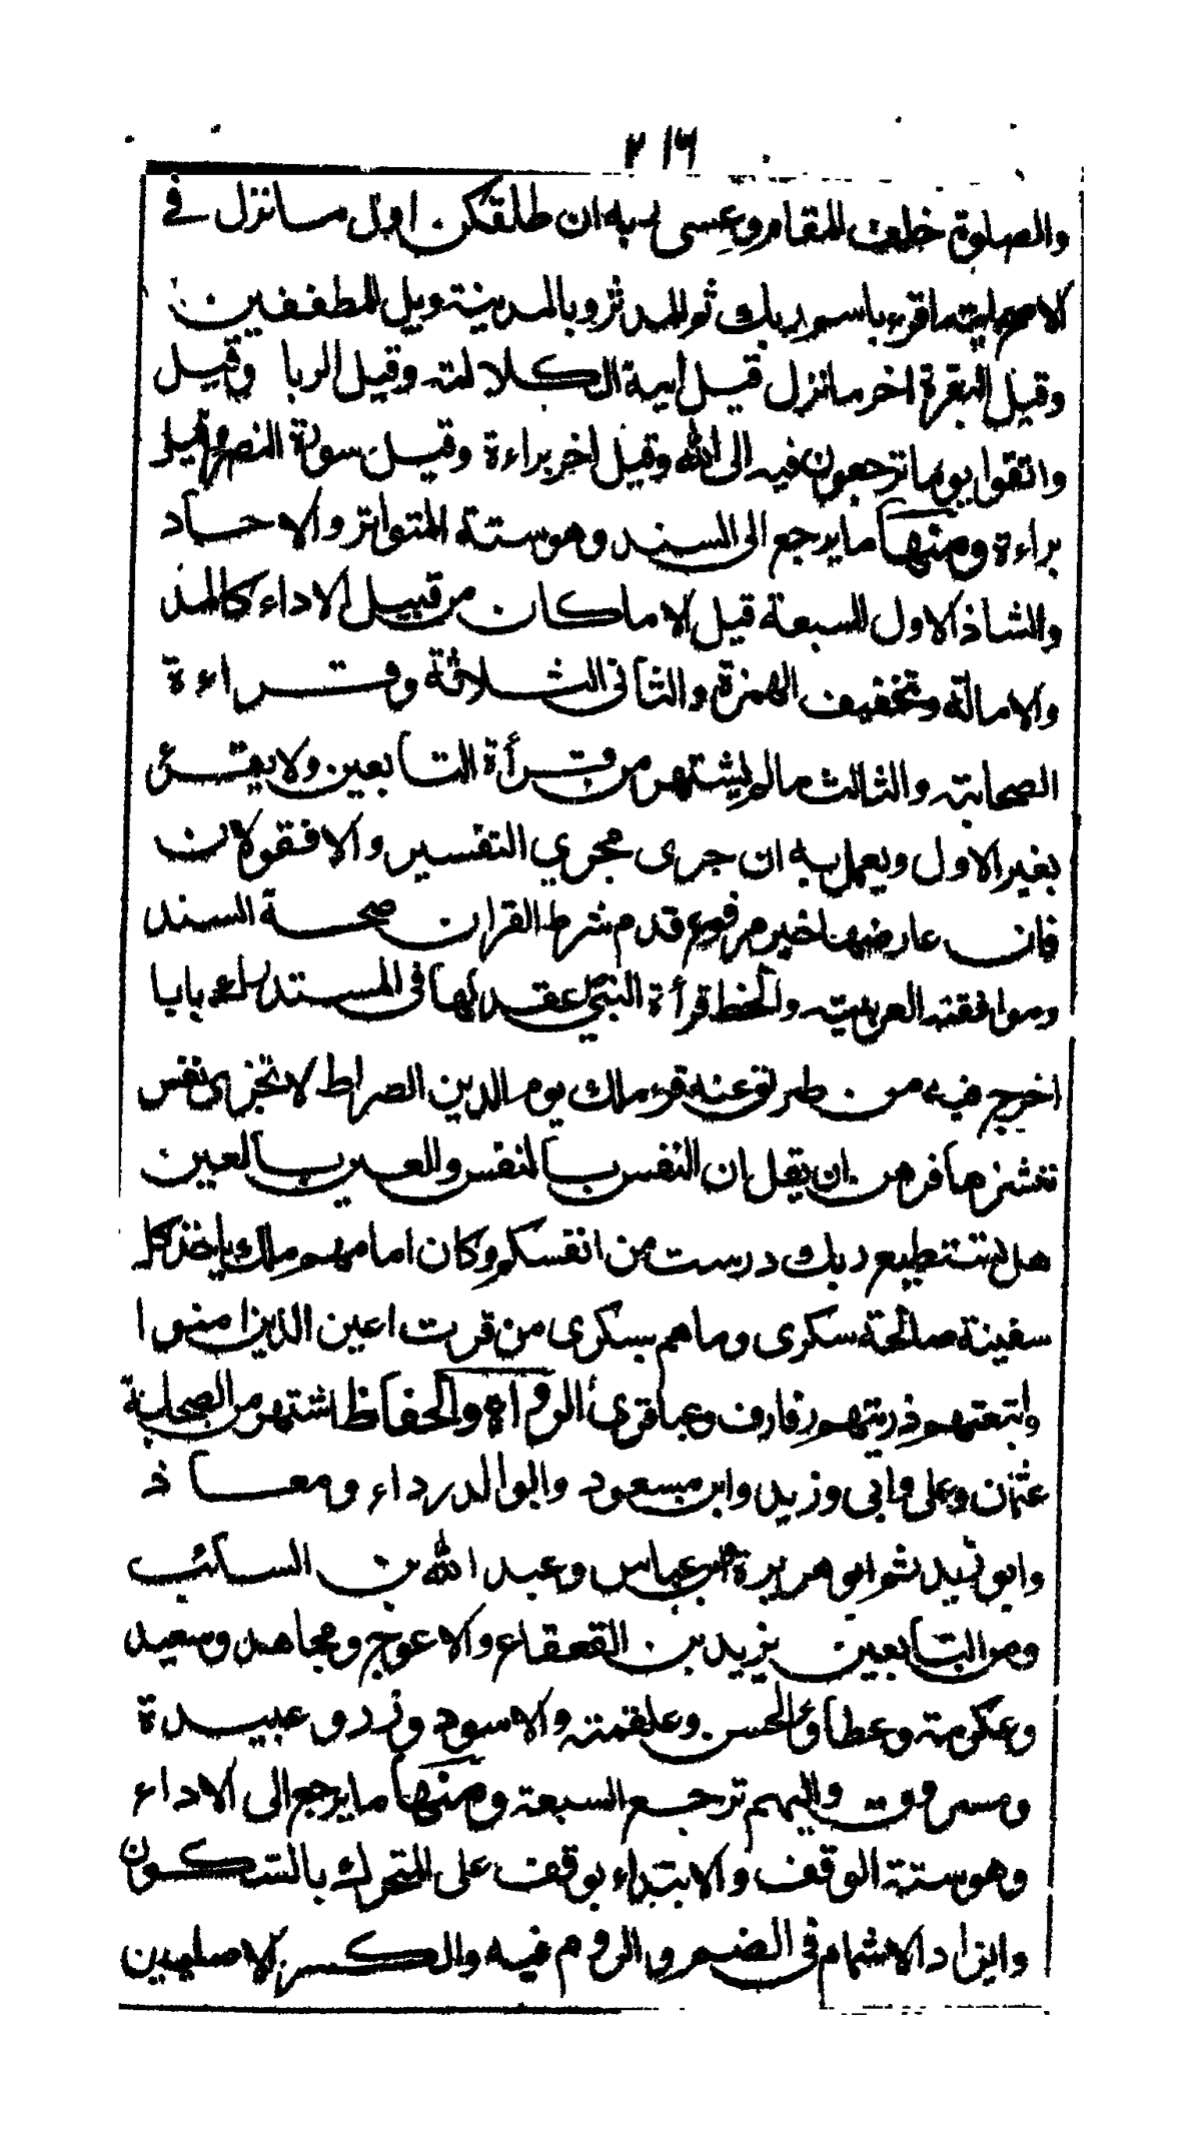 ٢١٦
والصلوة خلف المقام وعسى ربه ان طلقكن اول ما نزل في
الاصح انه اقرء باسم ربك ثم المدثر وبالمدينة ويل للمطففين
وقيل البقرة اخر ما نزل قيل اية الكلالة وقيل الربا وقيل
واتقوا يوما ترجعون فيه الى الله وقيل اخر براءة وقيل سورة النصر وقيل
براءة ومنها ما يرجع الى السند وهو ستة المتواتر والاحاد
والشاذ الاول السبعة قيل الا ما كان من قبيل الاداء كالمد
والامالة وتخفيف الهمزة والثاني الثلاثة وقراءة
الصحابة والثالث ما لم يشتهر من قرأة التابعين ولا يقرئ
بغير الاول ويعمل به ان جرى مجري التفسير والا فقولان
فان عارضها خبر مرفوع قدم شرط القران صحة السند
وموافقته العربية والخط قرأة النبي عقد لها في المستدرك بابا
اخرج فيه من طرق عنه قرء ملك يوم الدين الصراط لا تجزى نفس
ننشزها فرهن ان يغل ان النفس بالنفس والعين بالعين
هل تستطيع ربك درست من انفسكم وكان امامهم ملك ياخذ كل
سفينة صالحة سكرى وما هم بسكرى من قرت اعين الذين امنوا
واتبعتهم ذريتهم رفارف وعباقرى الرواة والحفاظ اشتهر من الصحابة
عثمان وعلى وابى وزيد وابن مسعود وابو الدرداء ومعاذ
وابو زيد ثم ابو هريرة وابن عباس وعبد الله بن السائب
ومن التابعين يزيد بن القعقاع والاعوج ومجاهد وسعيد
وعكرمة وعطا والحسن وعلقمة والاسود وزر وعبيدة
ومسروق واليهم ترجع السبعة ومنها ما يرجع الى الاداء
وهو ستة الوقف والابتداء يوقف على المتحرك بالسكون
وايزاد الاشمام في الضم والروم فيه والكسر الاصليين